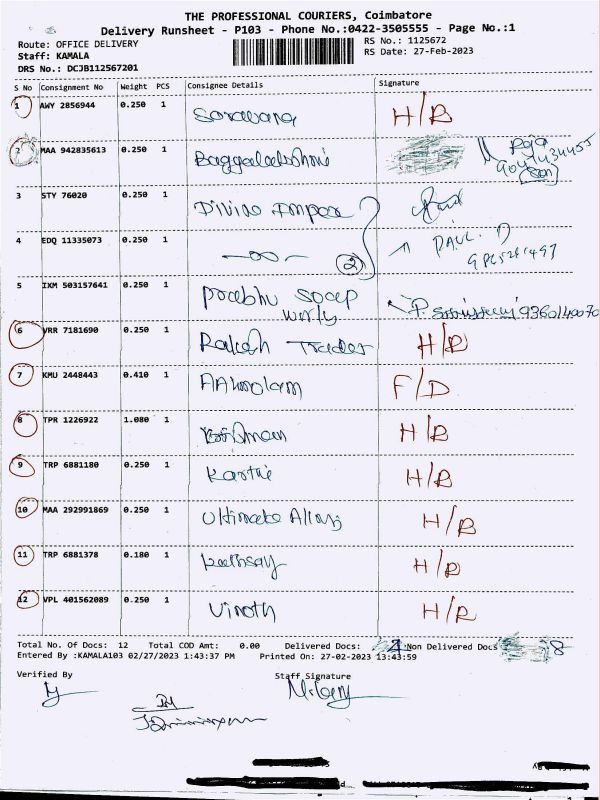 THE PROFESSIONAL COURIERS, Coimbatore
Delivery Runsheet - P103 - Phone No.:0422-3505555 - Page No.:1
Route: OFFICE DELIVERY RS No.: 1125672
Staff: KAMALA RS Date: 27-Feb-2023
DRS No.: DCJB112567201
S No Consignment No Weight PCS Consignee Details Signature
1 AWY 2856944 0.250 1 H/B
2 MAA 942835613 0.250 1 Raja
(Son)
3 STY 76020 0.250 1 Divine Impex
4 EDQ 11335073 0.250 1 —oo— (2) PAUL. D
5 IXM 503157641 0.250 1 Prabhu Soap
works 9360140070
6 VRR 7181690 0.250 1 Rakesh Trader H/B
7 KMU 2448443 0.410 1 F/D
8 TPR 1226922 1.080 1 H/B
9 TRP 6881180 0.250 1 Karthi H/B
10 MAA 292991869 0.250 1 Ultimate Alloys H/B
11 TRP 6881378 0.180 1 H/B
12 VPL 401562089 0.250 1 Vinoth H/B
Total No. Of Docs: 12 Total COD Amt: 0.00 Delivered Docs: 4 Non Delivered Docs 8
Entered By :KAMALA103 02/27/2023 1:43:37 PM Printed On: 27-02-2023 13:43:59
Verified By Staff Signature